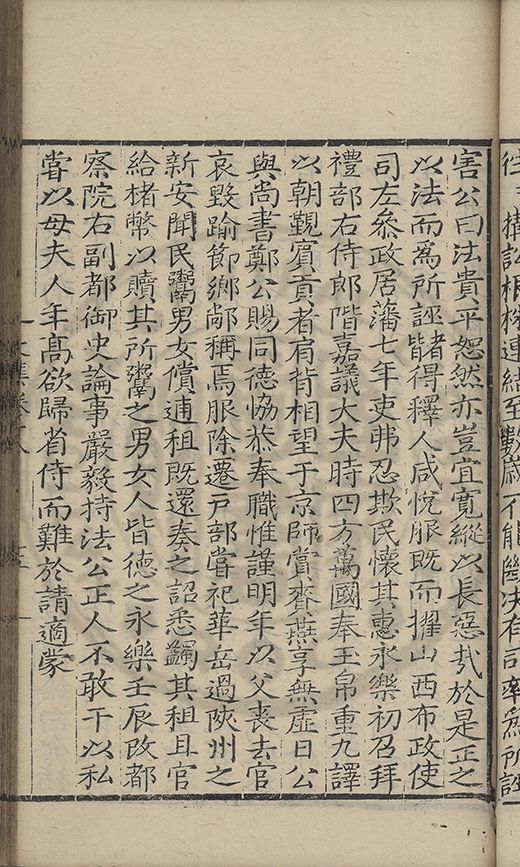 往〻搆訟根株連結至數歳不能斷决有司卒為所誣
害公曰法貴平恕然亦豈宜寛縱以長惡㢤於是正之
以法而為所誣者皆得釋人咸恱服既而擢山西布政使
司左叅政居藩七年吏弗忍欺民懷其惠永樂初召拜
禮部右侍郎階嘉議大夫時四方萬國奉玉帛重九譯
以朝覲賓貢者肩背相望于京師賞賚燕享無虚日公
與尚書鄭公賜同德恊恭奉職惟謹明年以父喪去官
哀毀踰節鄉鄰稱焉服除遷戸部嘗祀華岳過陜州之
新安聞民鬻男女償逋租既還奏之詔悉蠲其租且官
給楮幣以贖其所鬻之男女人皆德之永樂壬辰改都
察院右副都御史論事嚴毅持法公正人不敢干以私
嘗以母夫人年髙欲歸省侍而難於請適蒙